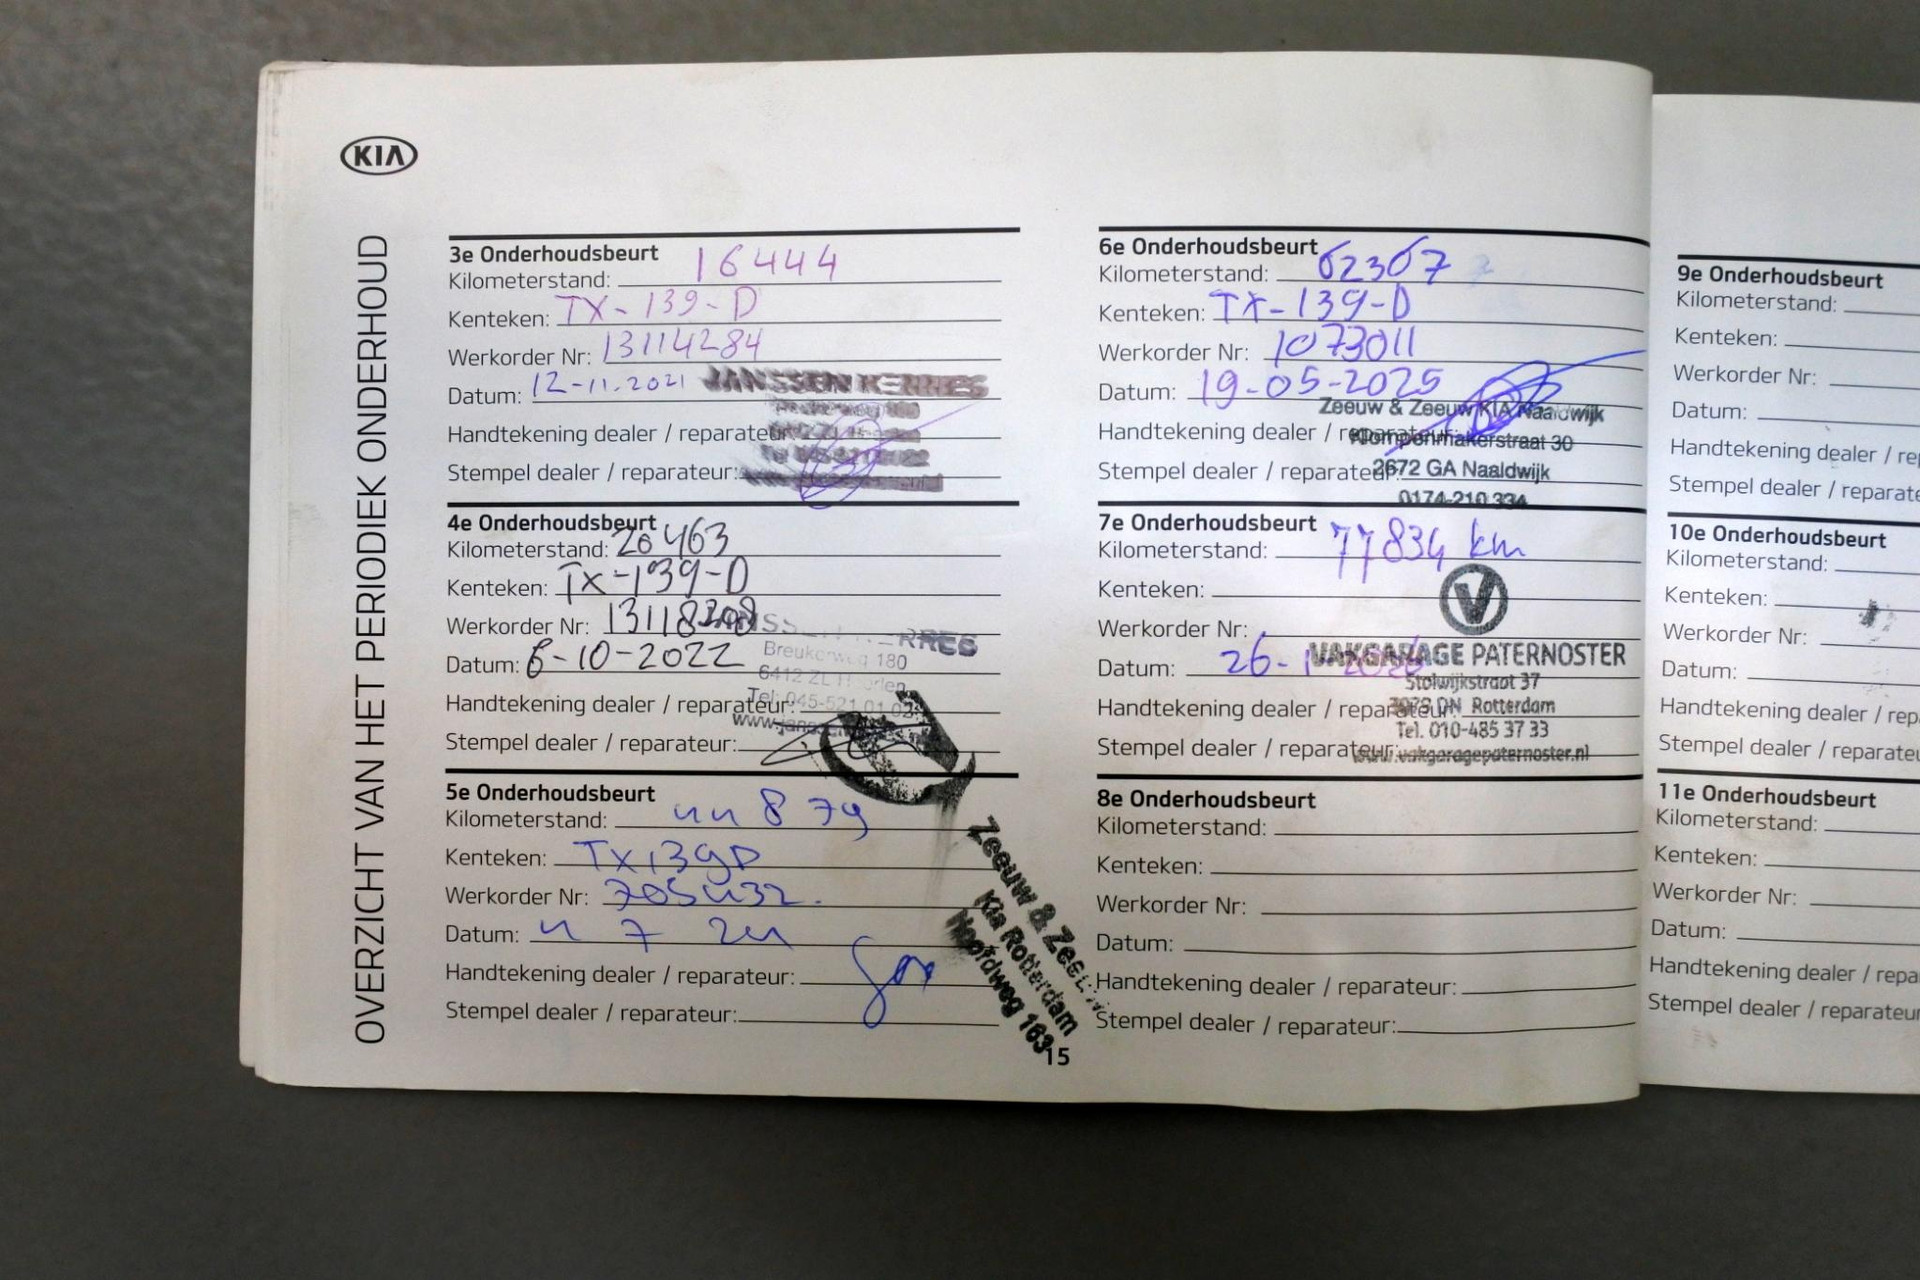 KIA
OVERZICHT VAN HET PERIODIEK ONDERHOUD
3e Onderhoudsbeurt
Kilometerstand: 16444
Kenteken: TX-139-D
Werkorder Nr: 13114284
Datum: 12-11-2021
JANSSEN KERRES
Handtekening dealer / reparateur:
Stempel dealer / reparateur:
4e Onderhoudsbeurt
Kilometerstand: 26463
Kenteken: TX-139-D
Werkorder Nr: 13118208
Datum: 6-10-2022
JANSSEN KERRES
Breukerweg 180
6412 ZL Heerlen
Tel: 045-521 01 02
Handtekening dealer / reparateur:
Stempel dealer / reparateur:
5e Onderhoudsbeurt
Kilometerstand: 44879
Kenteken: TX139D
Werkorder Nr: 705432.
Datum: 4 7 24
Handtekening dealer / reparateur:
Stempel dealer / reparateur:
Zeeuw & Zeeuw
Kia Rotterdam
Hoofdweg 163
15
6e Onderhoudsbeurt
Kilometerstand: 62307
Kenteken: TX-139-D
Werkorder Nr: 1073011
Datum: 19-05-2025
Zeeuw & Zeeuw KIA Naaldwijk
Handtekening dealer / reparateur:
Klompenmakerstraat 30
Stempel dealer / reparateur:
2672 GA Naaldwijk
0174-210 334
7e Onderhoudsbeurt
Kilometerstand: 77834 km
Kenteken:
Werkorder Nr:
V
Datum: 26-1-2026
VAKGARAGE PATERNOSTER
Stolwijkstraat 37
Handtekening dealer / reparateur:
DN Rotterdam
Tel. 010-485 37 33
Stempel dealer / reparateur:
www.vakgaragepaternoster.nl
8e Onderhoudsbeurt
Kilometerstand:
Kenteken:
Werkorder Nr:
Datum:
Handtekening dealer / reparateur:
Stempel dealer / reparateur:
9e Onderhoudsbeurt
Kilometerstand:
Kenteken:
Werkorder Nr:
Datum:
Handtekening dealer / re
Stempel dealer / reparate
10e Onderhoudsbeurt
Kilometerstand:
Kenteken:
Werkorder Nr:
Datum:
Handtekening dealer / rep
Stempel dealer / reparate
11e Onderhoudsbeurt
Kilometerstand:
Kenteken:
Werkorder Nr:
Datum:
Handtekening dealer / repa
Stempel dealer / reparateur